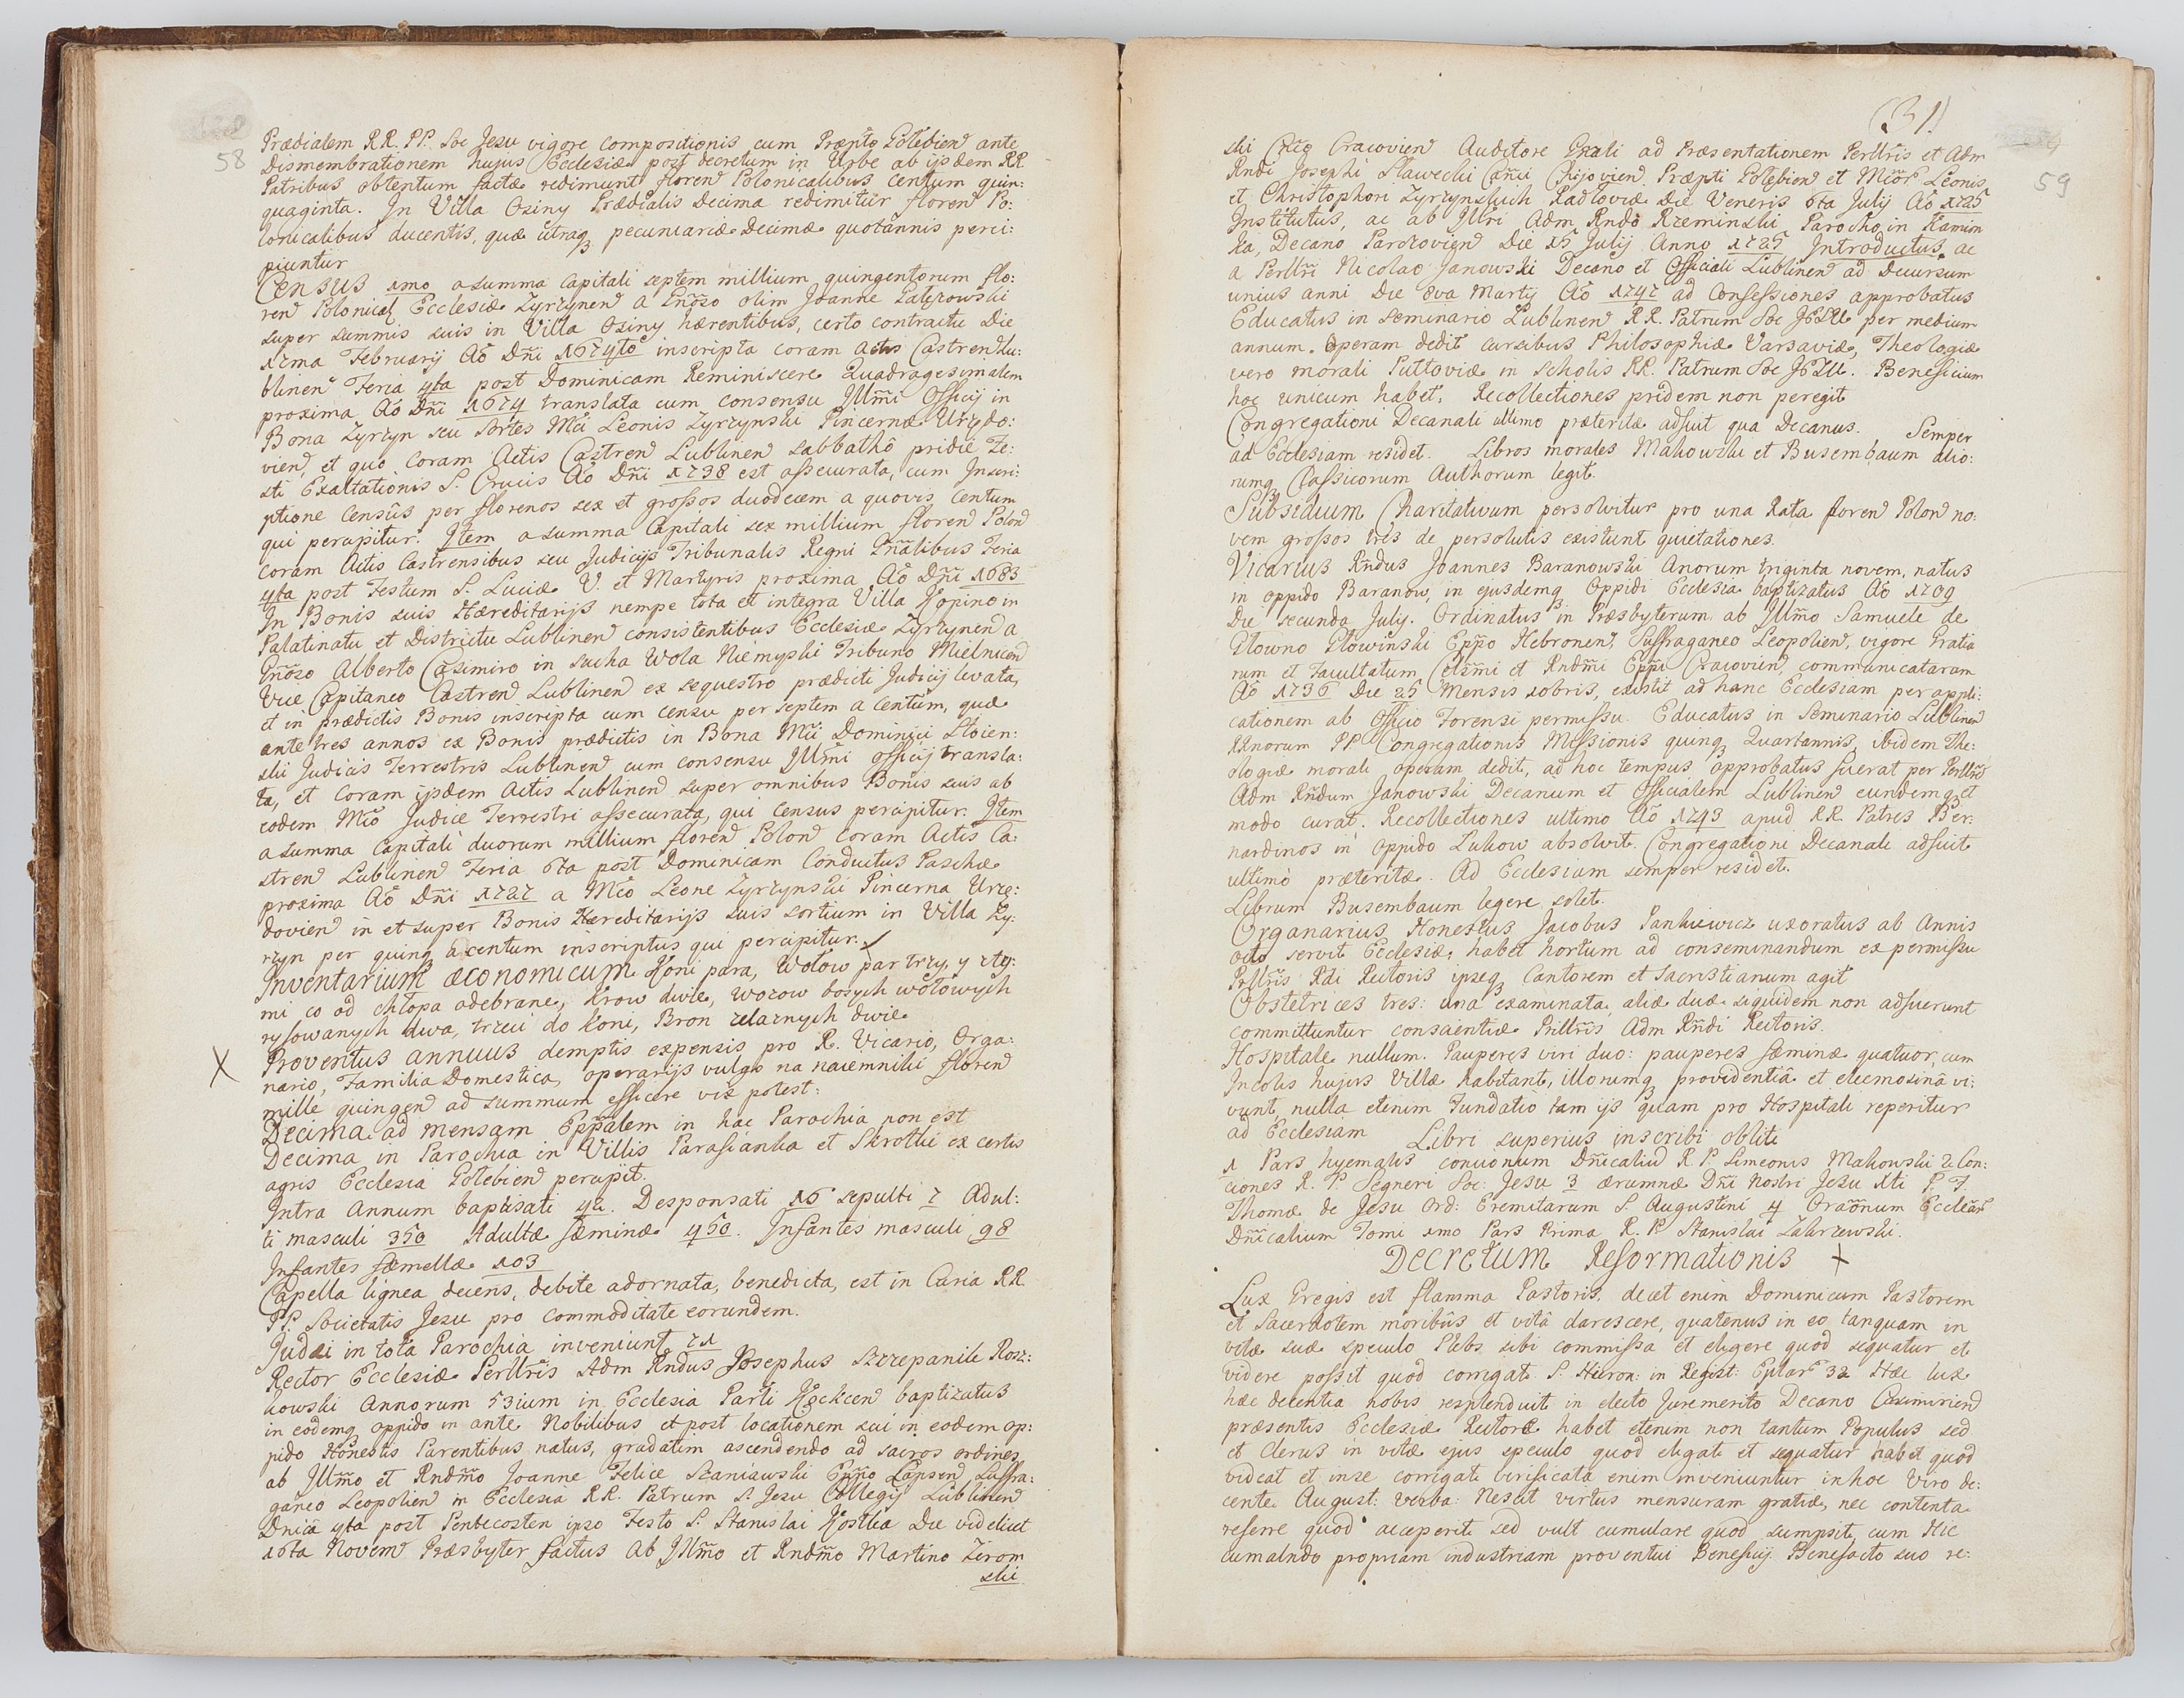 58
Prædialem RR. PP. Soc Jesu vigore compositionis cum Præpto Gołębien ante
Dismembrationem hujus Ecclesiæ post decretum in Urbe ab ijsdem RR
Patribus obtentum factæ redimunt floren Polonicalibus Centum quin:
quaginta. In Villa Osiny Prædialis Decima redimitur floren Po:
lonicalibus ducentis, quæ utraq pecuniariæ Decimæ quotannis perci:
piuntur
Census 1mo a summa Capitali septem millium quingentorum flo:
ren Polonical Ecclesiæ Zyrzynen a Gnoso olim Joanne
super summis suis in Villa Osiny hærentibus, certo contractu Die
17ma Februarij Ao Dni inscripta coram Actis Castren Lu:
blinen Feria 4ta post Dominicam Reminiscere Quadragesimalem
proxima Ao Dni 1674 translata cum consensu Illmi Officij in
Bona Zyrzyn seu Sortes Mci Leonis Zyrzynski Pincernæ Urzędo:
vien, et quo coram Actis Castren Lublinen Sabbathô pridie Fe:
sti Exaltationis S. Crucis Ao Dni 1738 est assecurata, cum Inscri:
ptione Censûs per florenos sex et grossos duodecem a quovis Centum
qui percipitur. Item a summa Capitali sex millium floren Polon
coram Actis Castrensibus seu Judicijs Tribunalis Regni Gnalibus Feria
4ta post Festum S. Luciæ V. et Martyris proxima Ao Dni 1683
In Bonis suis Hæreditarijs nempe tota et integra Villa Kopino in
Palatinatu et Districtu Lublinen consistentibus Ecclesiæ Zyrzynen a
Gnoso Alberto Casimiro in Sucha Wola Niemyski Tribuno Mielnicen
Vice Capitaneo Castren Lublinen ex sequestro prædicti Judicij levata,
et in prædictis Bonis inscripta cum censu per septem a Centum, quæ
ante tres annos ex Bonis prædictis in Bona Mci Dominici Stoien:
ski Judicis Terrestris Lublinen cum consensu Illmi officij transla:
ta, et coram ijsdem Actis Lublinen super omnibus Bonis suis ab
eodem Mco Judice Terrestri assecurata, qui Census percipitur. Item
a summa Capitali duorum millium floren Polon coram Actis Ca:
stren Lublinen Feria 6ta post Dominicam Conductus Paschæ
proxima Ao Dni 1727 a Mco Leone Zyrzynski Pincerna Urzę:
dovien in et super Bonis Hæreditarijs suis sortium in Villa Zy:
rzyn per quinq a centum inscriptus qui percipitur.
Inventarium æconomicum Koni para, Wołow par trzy, y z tę:
mi co od chłopa odebrane, Krow dwie, wozow bosych wołowych
rysowanych dwa, trzeci do koni, Bron zelaznych dwie
X Proventus annuus demptis expensis pro R. Vicario, Orga:
nario, Familia Domestica, operarijs vulgo na naiemniki floren
mille quingen ad summum efficere vix potest:
Decima ad mensam Eppalem in hac Parochia non est
Decima in Parochia in Villis Parafianka et Skrotki ex certis
agris Ecclesia Gołębien percipit.
Intra Annum baptisati 42. Desponsati 16 sepulti 7 Adul:
ti masculi 350 Adultæ fæminæ 450. Infantes masculi 98
Infantes fæmellæ 103
Capella lignea decens, debite adornata, benedicta, est in Curia RR
PP. Societatis Jesu pro commoditate eorundem.
Judæi in tota Parochia inveniunt 71
Rector Ecclesiæ Perllris Adm Rndus Josephus Szczepanik Rosz:
kowski Annorum 53ium in Ecclesia Parti Kockcen baptizatus
in eodemq oppido in ante Nobilibus et post locationem sui in eodem op:
pido Honestis Parentibus natus, gradatim ascendendo ad sacros ordines
ab Illmo et Rndmo Joanne Felice Szaniawski Eppo Lapsen, Suffra:
ganeo Leopolien in Ecclesia RR. Patrum S. Jesu Collegij Lublinen
Dnica 4ta post Pentecosten ipso Festo S. Stanislai Kostka Die videlicet
16ta Novem Præsbyter factus ab Illmo et Rndmo Martino Zerom
ski
(31)
59
ski Cttô Cracovien Auditore Gnali ad Præsentationem Perllris et Adm
Rndi Josephi Sławecki Canci Chijovien Præpti Gołębien et Mcor Leonis
et Christophori Zyrzynskich Radłoviæ Die Veneris 6ta Julij Ao 1725
Institutus, ac ab Illri Adm Rndo Rzeminski Parocho in Kamion
ka, Decano Parczovien Die 15 Julij Anno 1725 Introductus, ac
a Perllri Nicolao Janowski Decano et Officiali Lublinen ad Decursum
unius anni Die 8va Martij Ao 1747 ad Confessiones approbatus
Educatus in Seminario Lublinen RR. Patrum Soc JESU per medium
annum. Operam dedit cursibus Philosophiæ Varsaviæ, Theologiæ
vero morali Pułtoviæ in Scholis RR. Patrum Soc JESU. Beneficium
hoc unicum habet. Recollectiones pridem non peregit
Congregationi Decanali ultimo præteritæ adfuit qua Decanus. Semper
ad Ecclesiam residet. Libros morales Makowski et Busembaum alio:
rumq Classicorum Authorum legit.
Subsidium Charitativum persolvitur pro una Rata floren Polon no:
vem grossos tres de persolutis existunt quietationes.
Vicarius Rndus Joannes Baranowski Anorum triginta novem, natus
in oppido Baranow, in ejusdemq Oppidi Ecclesia baptizatus Ao 1709
Die secunda July. Ordinatus in Præsbyterum ab Illmo Samuele de
Głowno Głowinski Eppo Hebronen, Suffraganeo Leopolien, vigore Gratia
rum et Facultatum Celsmi et Rndmi Eppi Cracovien, communicatarum
Ao 1736 Die 25 Mensis xobris, existit ad hanc Ecclesiam per appli:
cationem ab Officio Forensi permissu. Educatus in Seminario Lublinen
RRnorum PP Congregationis Missionis quinq Quartannis, ibidem The:
ologiæ morali operam dedit, ad hoc tempus approbatus fuerat per Perllre
Adm Rndum Janowski Decanum et Officialem Lublinen eundemq et
modo curat. Recollectiones ultimo Ao 1743 apud RR. Patres Ber:
nardinos in oppido Łukow absolvit. Congregationi Decanali adfuit
ultimò præteritæ. Ad Ecclesiam semper residet.
Librum Busembaum legere solet.
Organarius Honestus Jacobus Jankiewicz uxoratus ab Annis
octo servit Ecclesiæ, habet hortum ad conseminandum ex permissu
Prllris Rdi Rectoris ipseq Cantorem et Sacristianum agit
Obstetrices tres: una examinata, aliæ duæ siquidem non adfuerunt
committuntur conscientiæ Prllris Adm Rndi Rectoris.
Hospitale nullum. Pauperes viri duo: pauperes fæminæ quatuor, cum
Incolis hujus Villæ habitant, illorumq providentiâ et eleemosinâ vi:
vunt, nulla etenim Fundatio tam ijs quam pro Hospitali reperitur
ad Ecclesiam Libri superius inscribi obliti
1 Pars hyemalis concionum Dnicaliu R. P. Simeonis Makowski 2 Con:
ciones R. P. Segneri Soc: Jesu 3 ærumnæ Dni Nostri Jesu Xti P. F.
Thomæ de Jesu Ord: Eremitarum S. Augustini 4 Oraonum Ecclear
Dnicalium Tomi 1mo Pars Prima R. P. Stanislai Zakrzewski.
Decretum Reformationis
Lux Gregis est flamma Pastoris, decet enim Dominicum Pastorem
et Sacerdotem moribûs et vitâ clarescere, quatenus in eo tanquam in
vitæ suæ speculo Plebs sibi commissa et eligere quod sequatur et
videre possit quod corrigat S. Hieron: in Regist: Eplar 32 Hæc lux
hæc decentia nobis resplenduit in electo Juremerito Decano Casimirien
præsentis Ecclesiæ Rectore habet etenim non tantum Populus sed
et Clerus in vitæ ejus speculo quod eligat et sequatur habet quod
videat et in se corrigat verificata enim inveniuntur in hoc Viro de:
cente August: verba: Nescit virtus mensuram gratiæ, nec contenta
referre quod acceperit sed vult cumulare quod sumpsit, cum Hic
cumalndo propriam industriam proventui Beneficij Benefacto suo re: